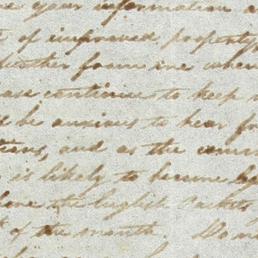 your information a
t of improved property
further from me when
ase continues to keep
be anxious to hear fr
tions, and as the comm
is likely to become
the English Packets
of the month.